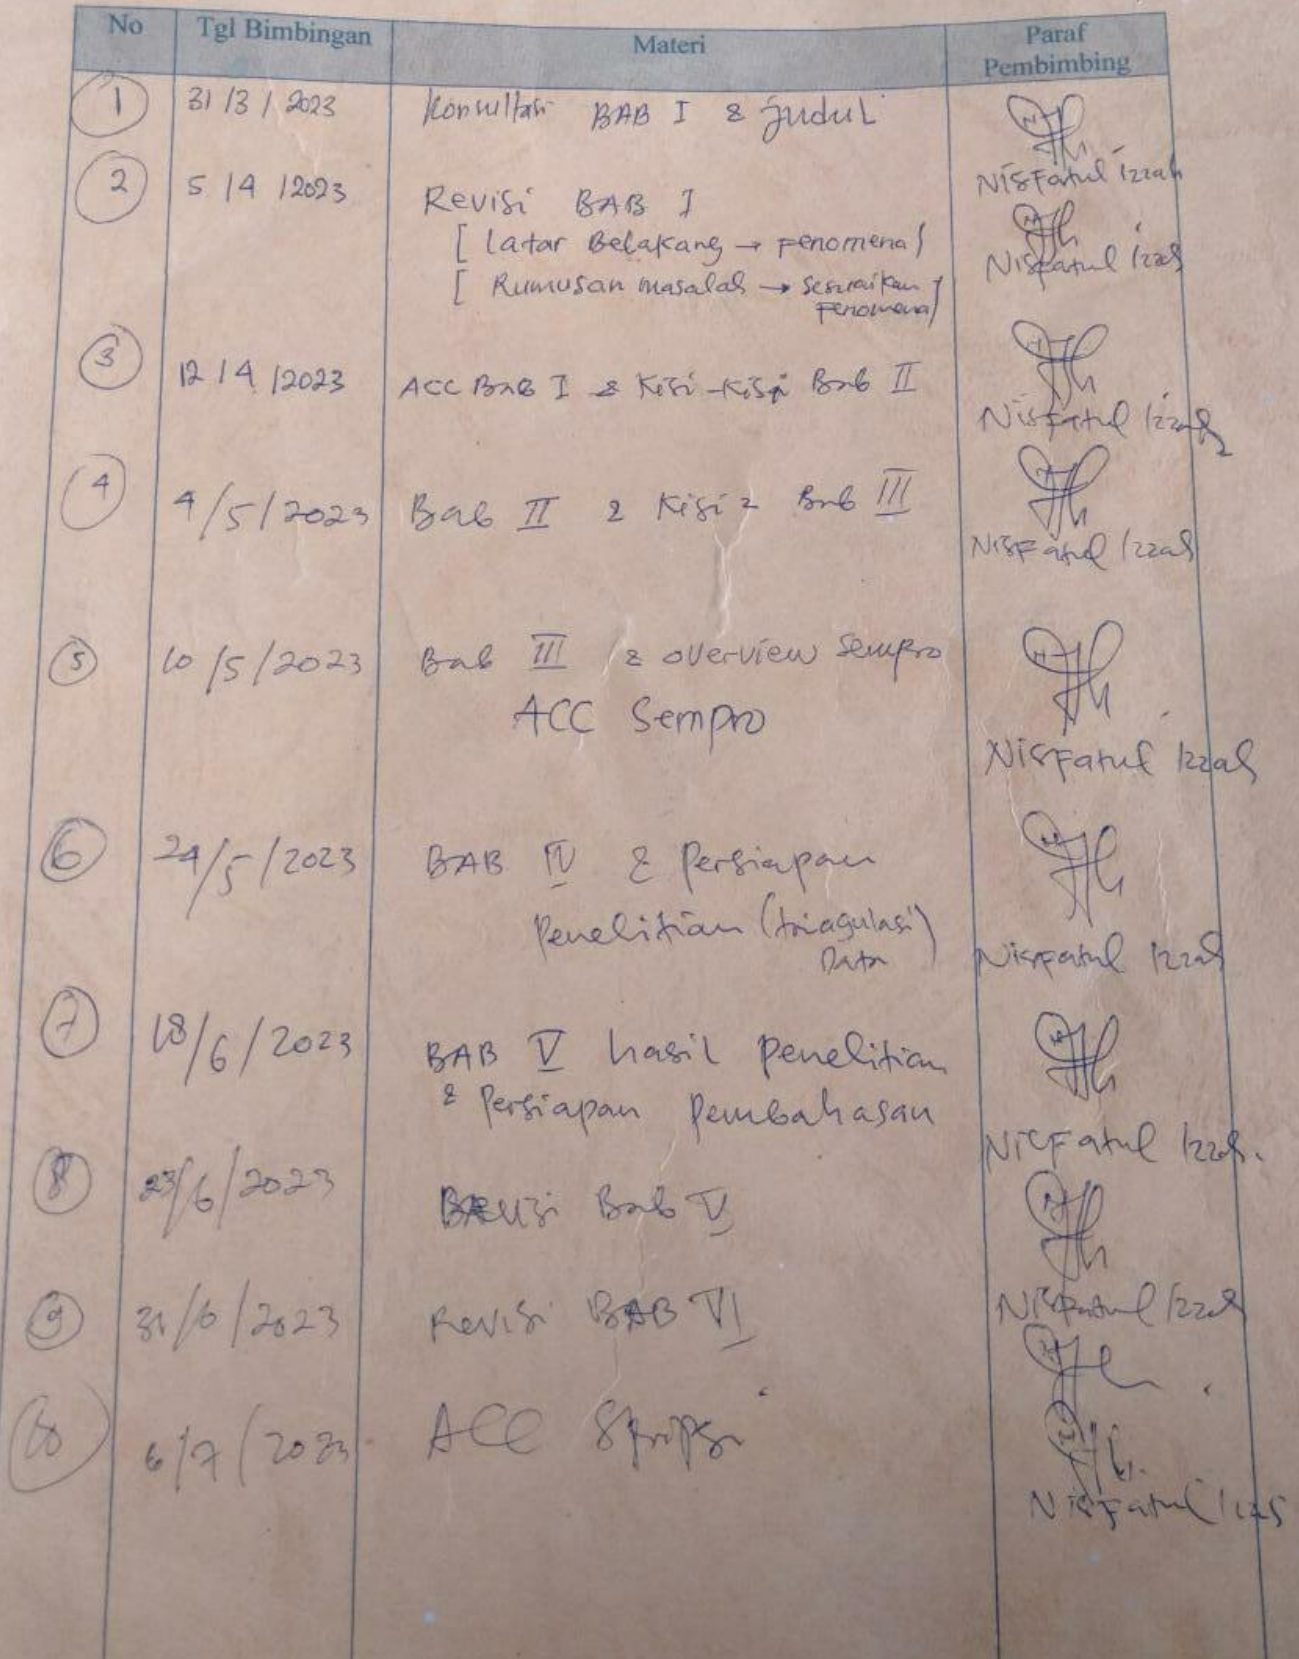 No Tgl Bimbingan Materi Paraf Pembimbing
1 31/3/2023 Konsultasi BAB I & judul
Nisfatul Izzah
2 5/4/2023 Revisi BAB I
[ Latar Belakang → Fenomena ]
[ Rumusan masalah → Sesuaikan Fenomena ]
Nisfatul Izzah
3 12/4/2023 ACC Bab I & Kisi-Kisi Bab II
Nisfatul Izzah
4 4/5/2023 Bab II & Kisi2 Bab III
Nisfatul Izzah
5 10/5/2023 Bab III & overview Sempro
ACC Sempro
Nisfatul Izzah
6 24/5/2023 BAB IV & Persiapan
Penelitian (triagulasi) Data
Nisfatul Izzah
7 18/6/2023 BAB V hasil Penelitian
& Persiapan Pembahasan
Nisfatul Izzah.
8 23/6/2023 Bab V
Nisfatul Izzah
9 31/6/2023 Revisi BAB VI
10 6/7/2023 ACC Skripsi
Nisfatul Izzah